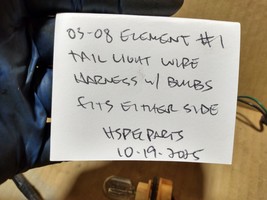 03-08 ELEMENT #1
TAIL LIGHT WIRE
HARNESS W/ BULBS
FITS EITHER SIDE
HSPEC PARTS
10-19-2025